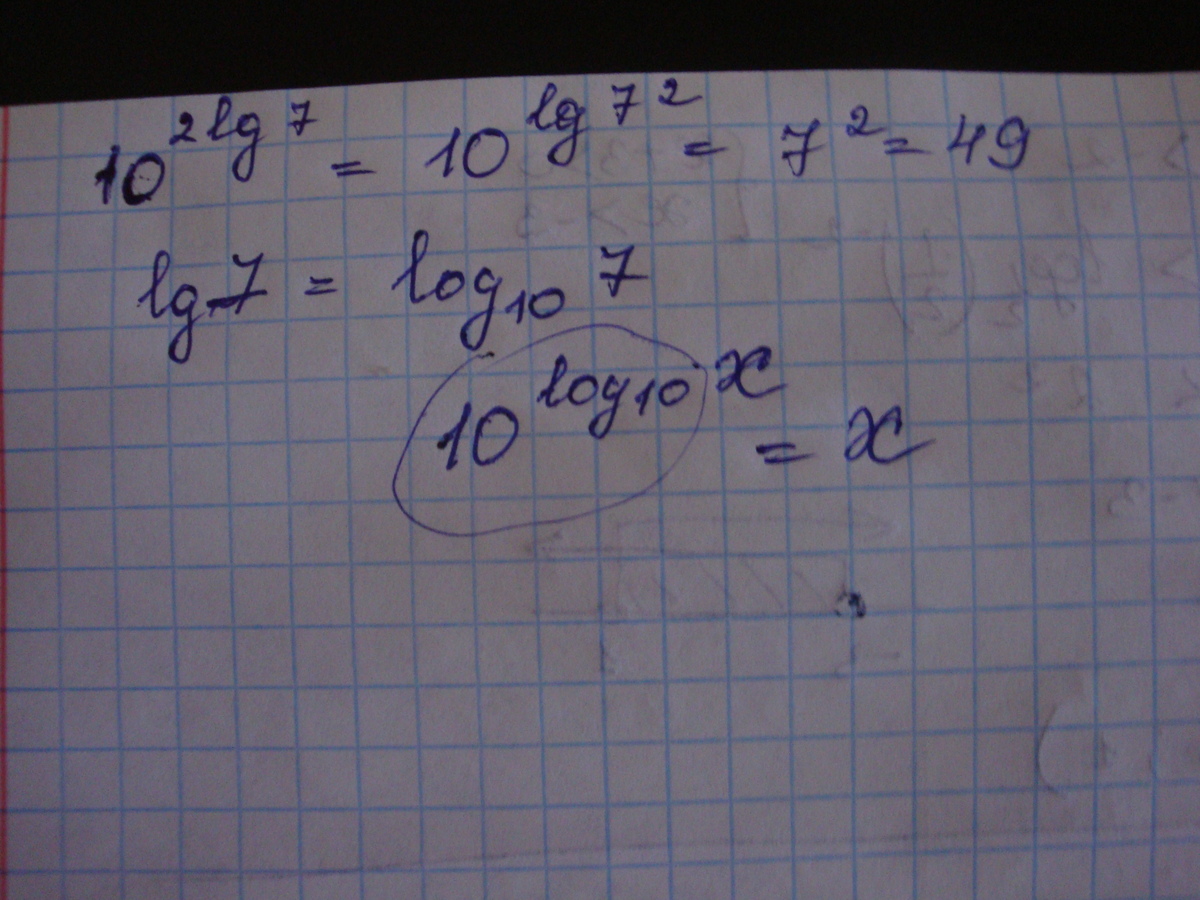 10^{2lg 7} = 10^{lg 7^2} = 7^2 = 49
lg 7 = log_{10} 7
10^{log_{10} x} = x